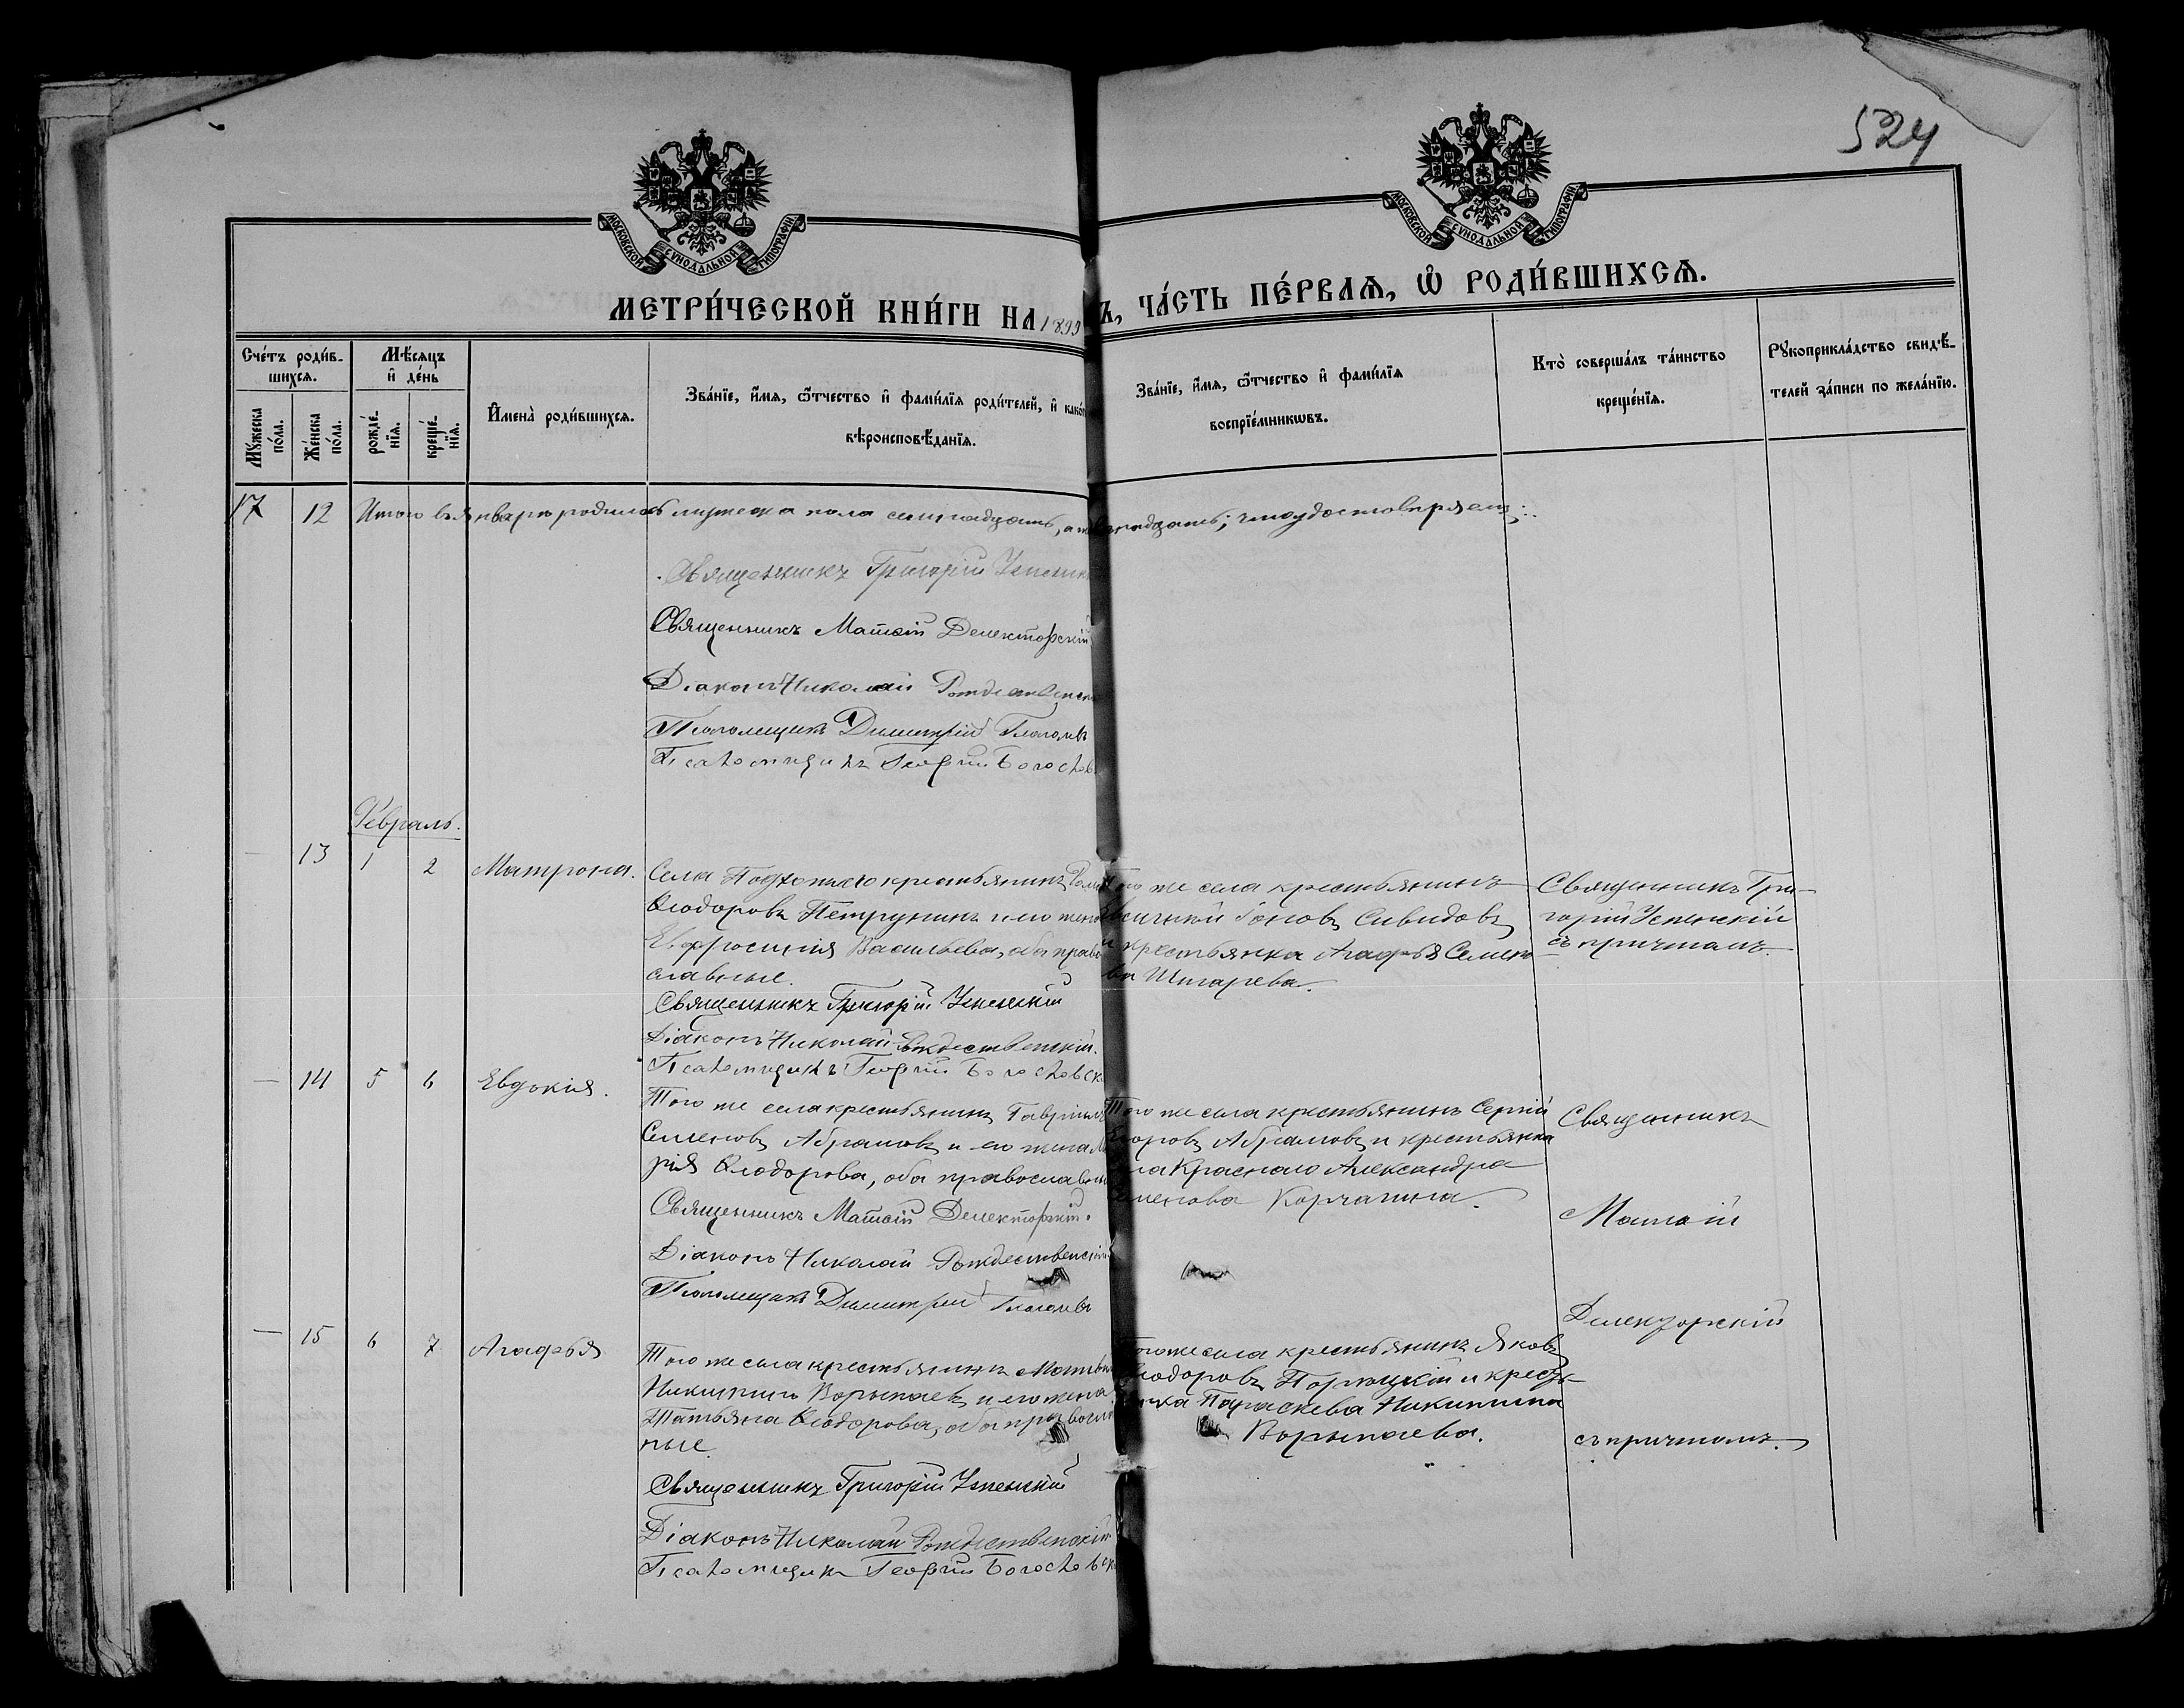 524
МОСКОВСКОЙ СѴНОДАЛЬНОЙ ТИПОГРАФІИ
МОСКОВСКОЙ СѴНОДАЛЬНОЙ ТИПОГРАФІИ
МЕТРИ́ЧЕСКОЙ КНИ́ГИ НА 1899 Ъ, ЧА́СТЬ ПЕ́РВАѦ, Ѽ РОДИ́ВШИХСѦ.
Сче́тъ роди́в-
шихсѧ.
Мꙋжеска по́ла.
Же́нска по́ла.
Мѣ́сѧцъ
и҆ де́нь
рожде́-
нїѧ.
креще́-
нїѧ.
И҆мена̀ роди́вшихсѧ.
Зва́нїе, и҆́мѧ, ѻ҆́тчество и҆ фами́лїѧ роди́телей, и҆ како́
вѣроисповѣ́данїѧ.
Зва́нїе, и҆́мѧ, ѻ҆́тчество и҆ фами́лїѧ
воспрїе́мникѡвъ.
Кто̀ соверша́лъ та́инство
креще́нїѧ.
Рꙋкоприкла́дство свидѣ́-
телей за́писи по жела́нїю.
17 12 Итого въ январѣ родилось мужеска пола семнадцать, а двенадцать; что удостовѣряемъ:
Священникъ Григорій Успенскі
Священникъ Матѳій Делекторскій
Діаконъ Николай Рождественск
Псаломщикъ Димитрій Глаголевъ
Псаломщикъ Георгій Богослов
Февраль.
— 13 1 2 Матрона.
Села крестьянинъ
Ѳеодоровъ Петрунинъ и его жена
Евфросинія Васильева, оба право
славные.
Священникъ Григорій Успенскій
Діаконъ Николай Рождественскій.
Псаломщикъ Георгій Богословск
того же села крестьянинъ
Сивидовъ
и крестьянка Агафья Семено
ва Шигарева.
Священникъ Гри-
горій Успенскій
съ причтомъ.
— 14 5 6 Евдокія.
Того же села крестьянинъ Гавріилъ
Семеновъ Абрамовъ и его жена Ма
рія Ѳеодорова, оба православн
Священникъ Матѳій Делекторскій.
Діаконъ Николай Рождественскій
Псаломщикъ Димитрій Глаголевъ
Того же села крестьянинъ Сергій
Абрамовъ и крестьянка
села Краснаго Александра
Семенова Корчагина.
Священникъ
Матѳій
Делекторскій
съ причтомъ.
— 15 6 7 Агафья
Того же села крестьянинъ Матвѣй
Никитинъ Ворыпаевъ и его жена
Татьяна Ѳеодорова, оба правосла
ные
Священникъ Григорій Успенскій
Діаконъ Николай Рождественскій
Псаломщикъ Георгій Богословск
Того же села крестьянинъ Яковъ
Ѳеодоровъ и кресть-
янка Параскева Никитина
Ворыпаева.